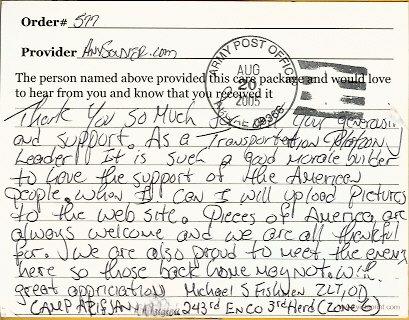 Order# 577
Provider AnySoldier.com
ARMY POST OFFICE
AUG
20
2005
09368
The person named above provided this care package and would love
to hear from you and know that you received it
Thank You So Much for your generosity
and support. As a Transportation Platoon
Leader It is such a good morale builder
to have the support of the American
people. When I can I will upload Pictures
to the web site. Pieces of America are
always welcome and we are all thankful
for. We are also proud to meet the enemy
here so those back home may not. With
great appriciation Michael S Fishman 2LT, OD
CAMP 243rd ENCO 3rd Herd (Zone 6)